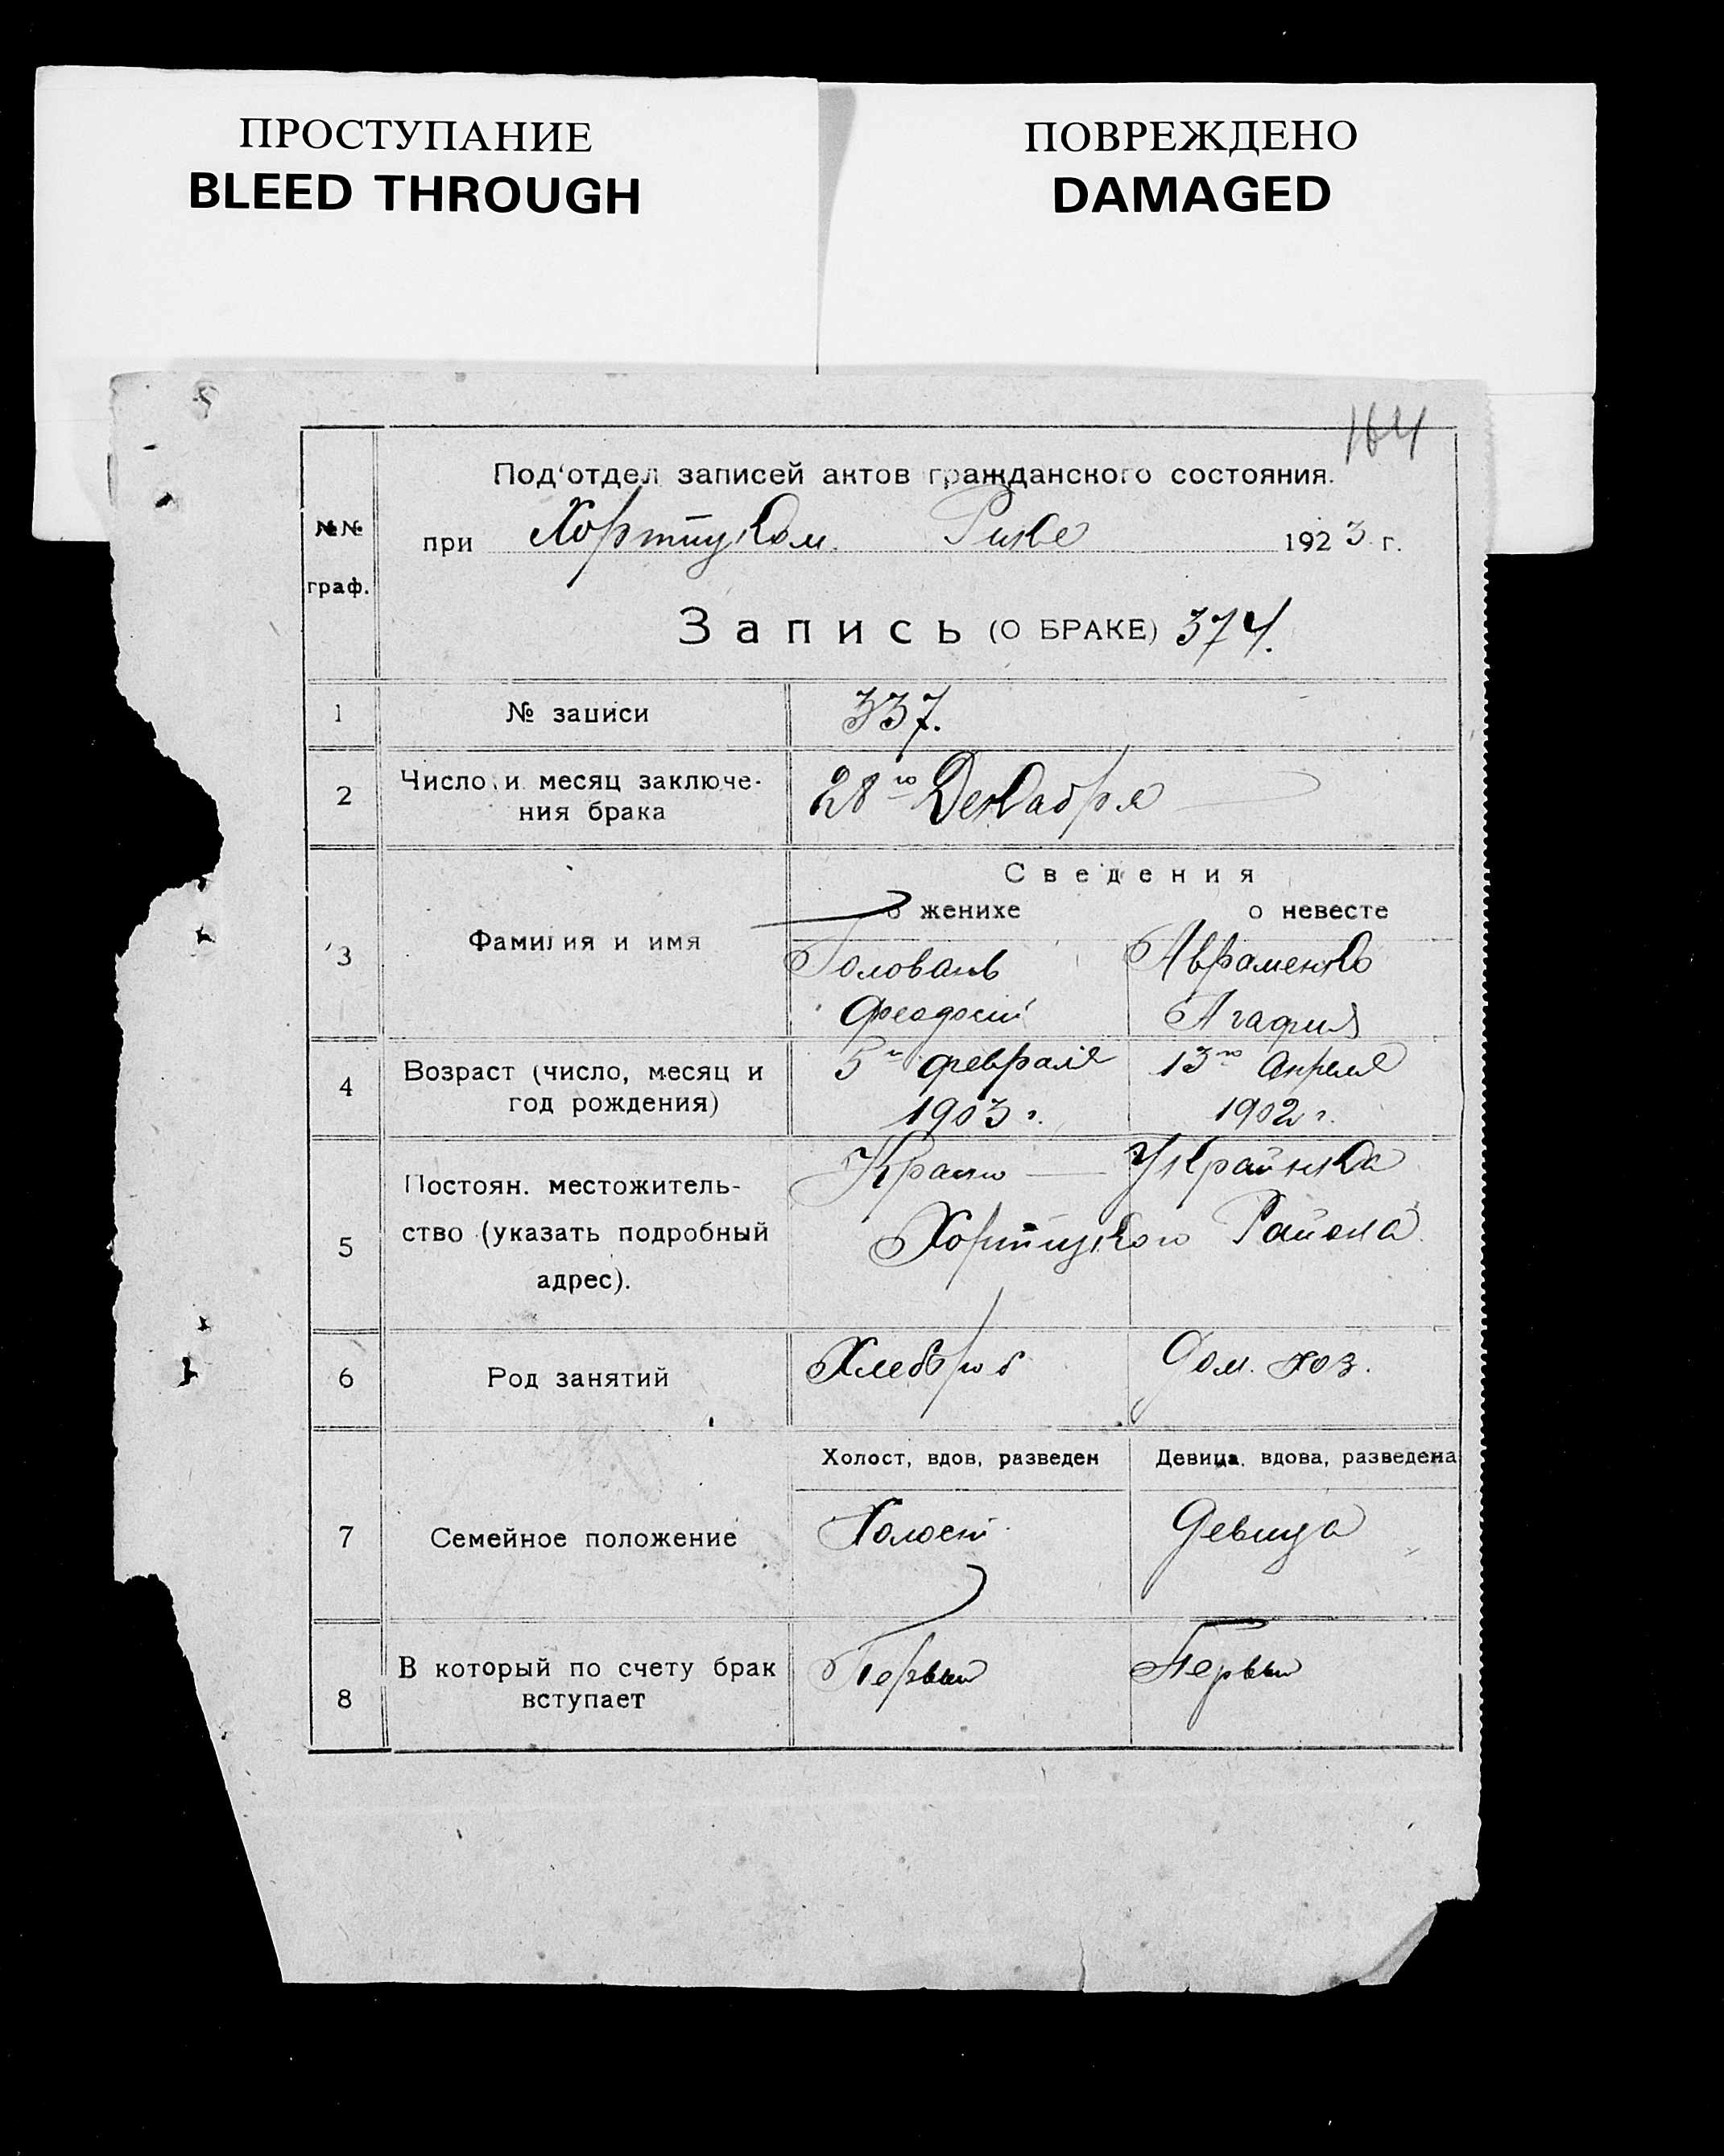 ПРОСТУПАНИЕ
BLEED THROUGH
ПОВРЕЖДЕНО
DAMAGED
164
№№
граф.
Под'отдел записей актов гражданского состояния.
при Хортицком. Рике 1923 г.
Запись (О БРАКЕ) 374.
1 № записи 337.
2 Число и месяц заключе-
ния брака 28го Декабря
Сведения
о женихе о невесте
3 Фамилия и имя
Головань Авраменко
Феодосий Агафия
4 Возраст (число, месяц и
год рождения)
5го февраля 13го Апреля
1903 г. 1902 г.
5 Постоян. местожитель-
ство (указать подробный
адрес).
Украинка
Хортицкого Района
6 Род занятий Хлебороб Дом. хоз.
Холост, вдов, разведен Девица, вдова, разведена
7 Семейное положение Холост Девица
8 В который по счету брак
вступает
Первый Первый